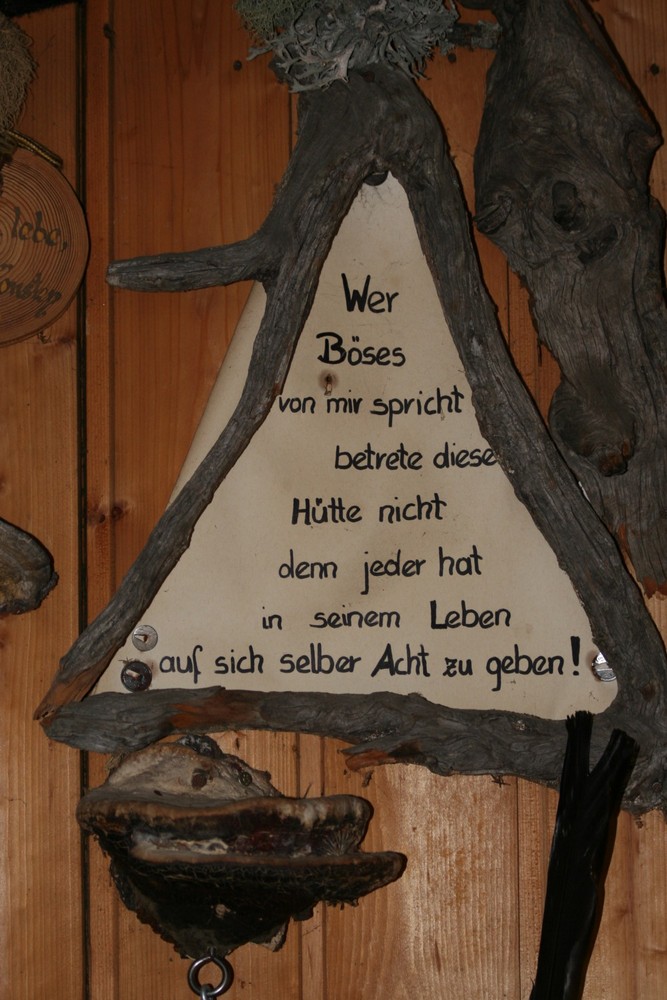 lebe,
Wer
Böses
von mir spricht
betrete diese
Hütte nicht
denn jeder hat
in seinem Leben
auf sich selber Acht zu geben!